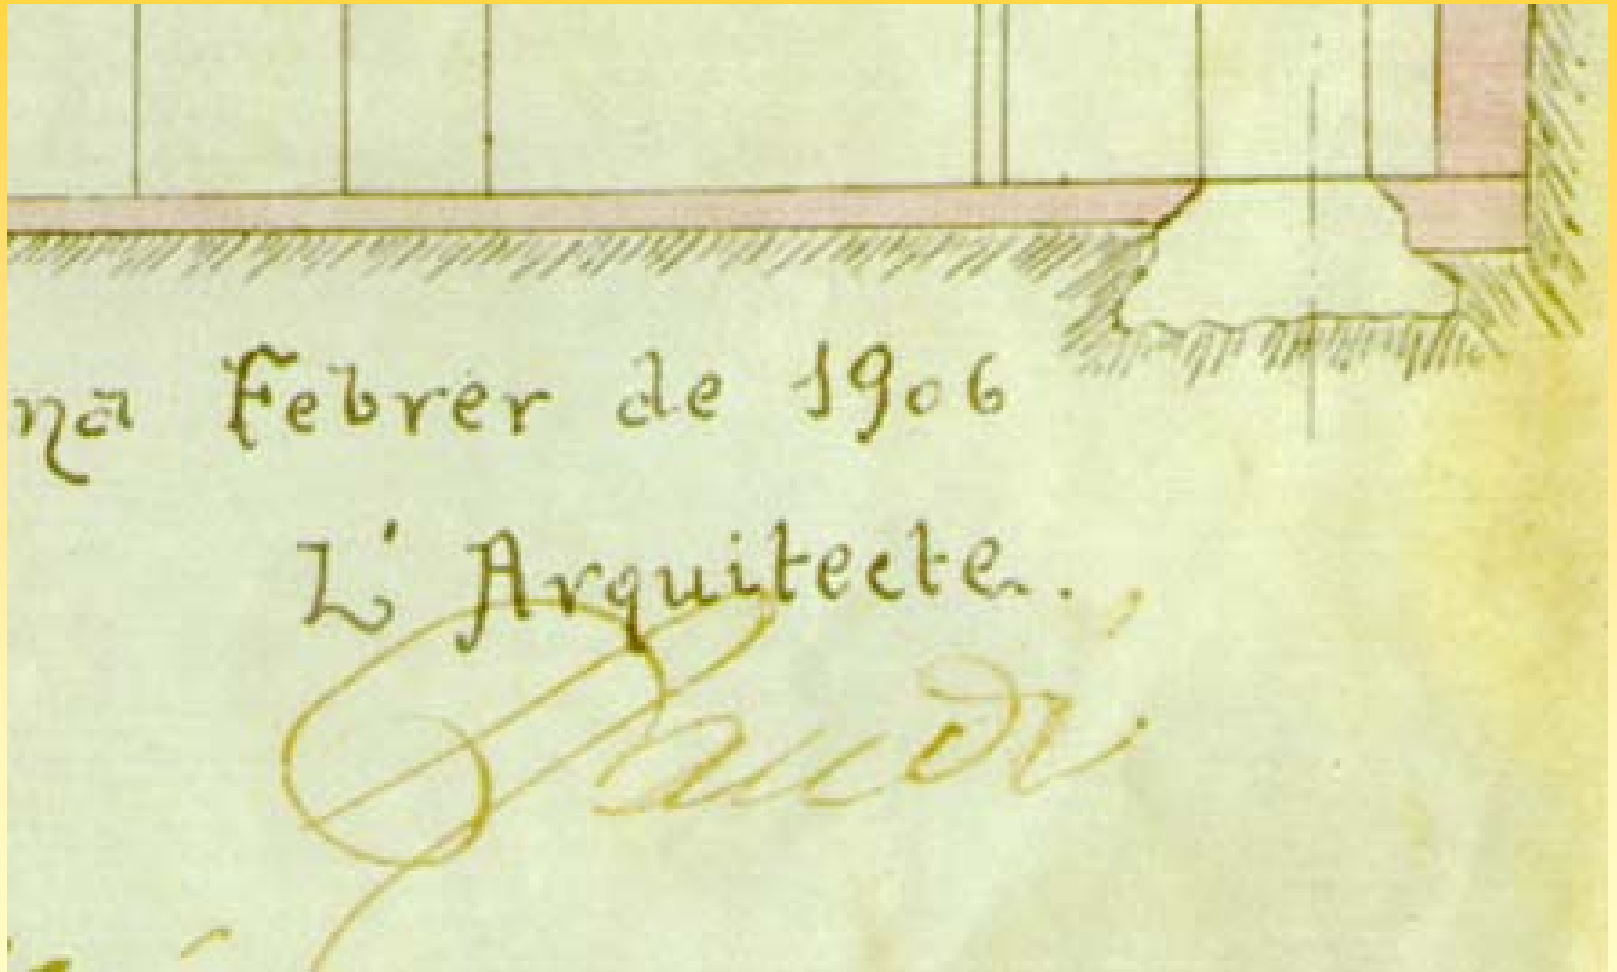 na Febrer de 1906
L' Arquitecte.
Gaudí